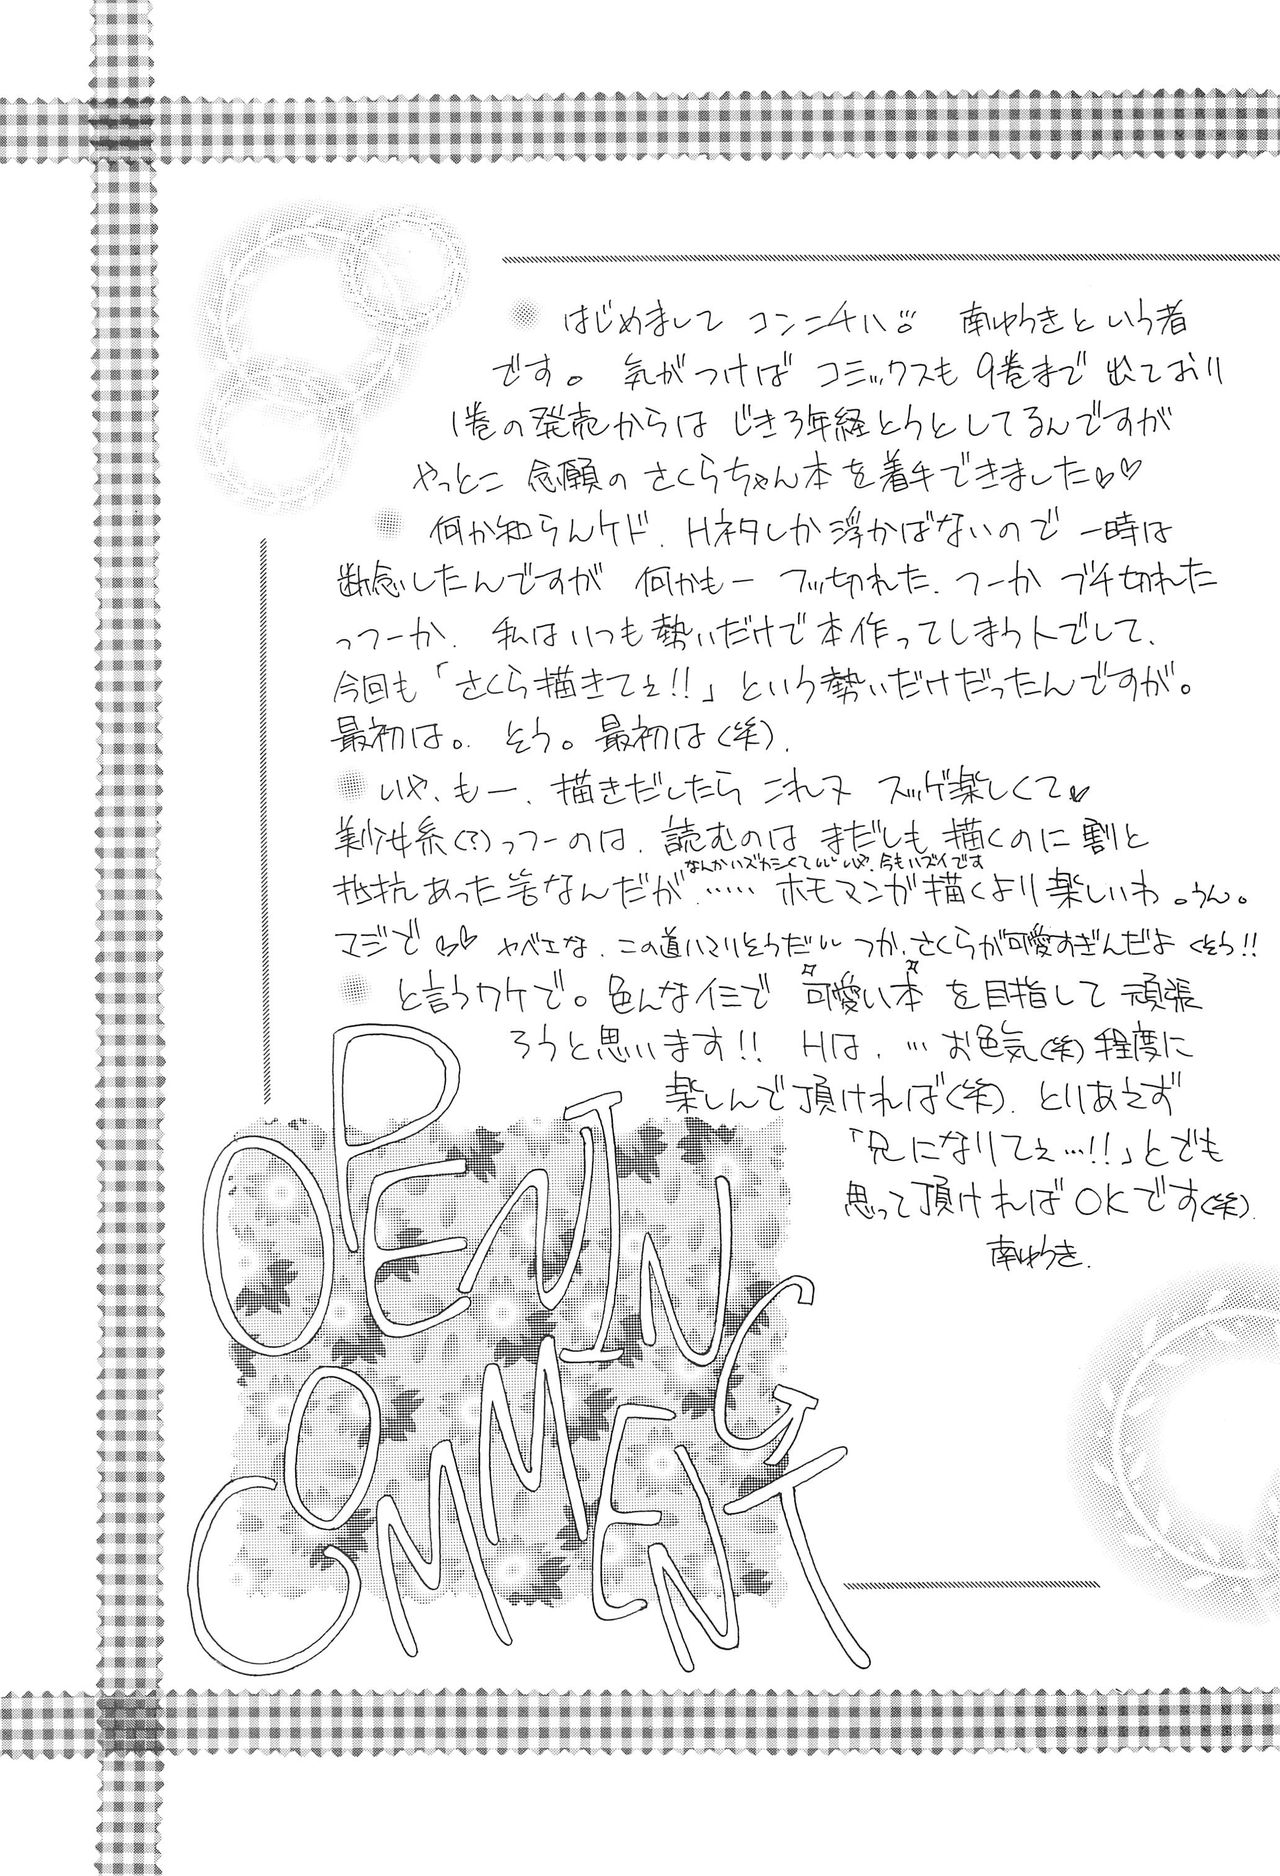 はじめまして コンニチハ 南ゆうきという者
です。気がつけば コミックスも 9巻まで 出ており
1巻の発売からは じき3年経とうとしてるんですが
やっとこ 念願の さくらちゃん本を着手できました♡♡
何か知らんケド、Hネタしか浮かばないので 一時は
断念したんですが 何かもー フッ切れた、つーか ブチ切れた
っつーか、私はいつも勢いだけで本作ってしまう人でして、
今回も「さくら描きてぇ!!」という勢いだけだったんですが。
最初は。そう。最初は(笑)。
いや、もー、描きだしたら これヌ スッゲ楽しくて♡
美少女系(?)っつーのは、読むのは まだしも 描くのに 割と
なんかハズカシくて いや、今もハズイです
抵抗あった筈なんだが…… ホモマンガ描くより楽しいわ。うん。
マジで♡♡ ヤベエな、この道ハマりそうだ つか、さくらが可愛すぎんだよ くそう!!
と言うワケで。色んなイミで 可愛い本 を目指して 頑張
ろうと思います!! Hは、…お色気(笑)程度に
楽しんで頂ければ(笑)。とりあえず
「兄になりてぇ…!!」とでも
思って頂ければOKです(笑)。
南ゆうき.
OPENING
COMMENT